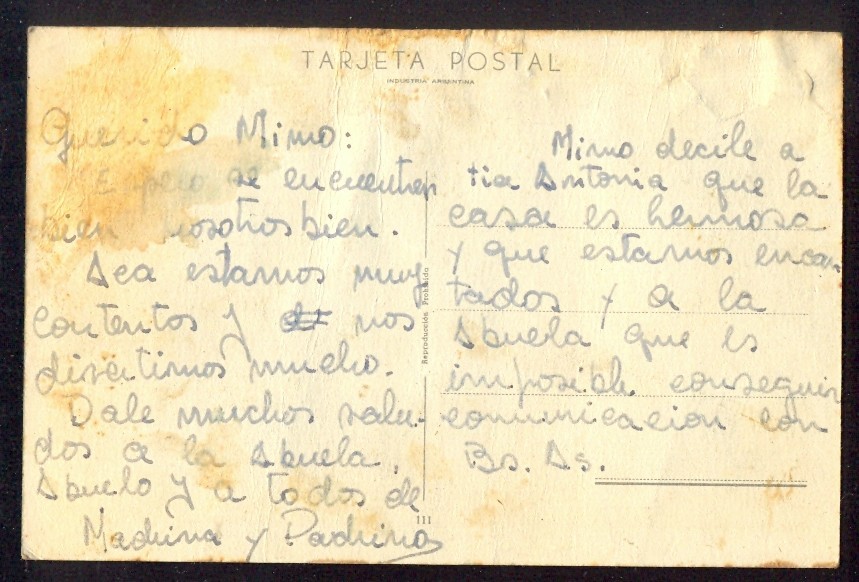 TARJETA POSTAL
INDUSTRIA ARGENTINA
Querido Mimo:
E pero se encuentren
bien nosotros bien.
Aca estamos muy
contentos y nos
divertimos mucho.
Dale muchos salu-
dos a la Abuela,
Abuelo y a todos de
Madrina y Padrino
Reproducción Prohibida
111
Mimo decile a
tia Antonia que la
casa es hermosa
y que estamos encan-
tados y a la
Abuela que es
imposible conseguir
comunicacion con
Bs. As.